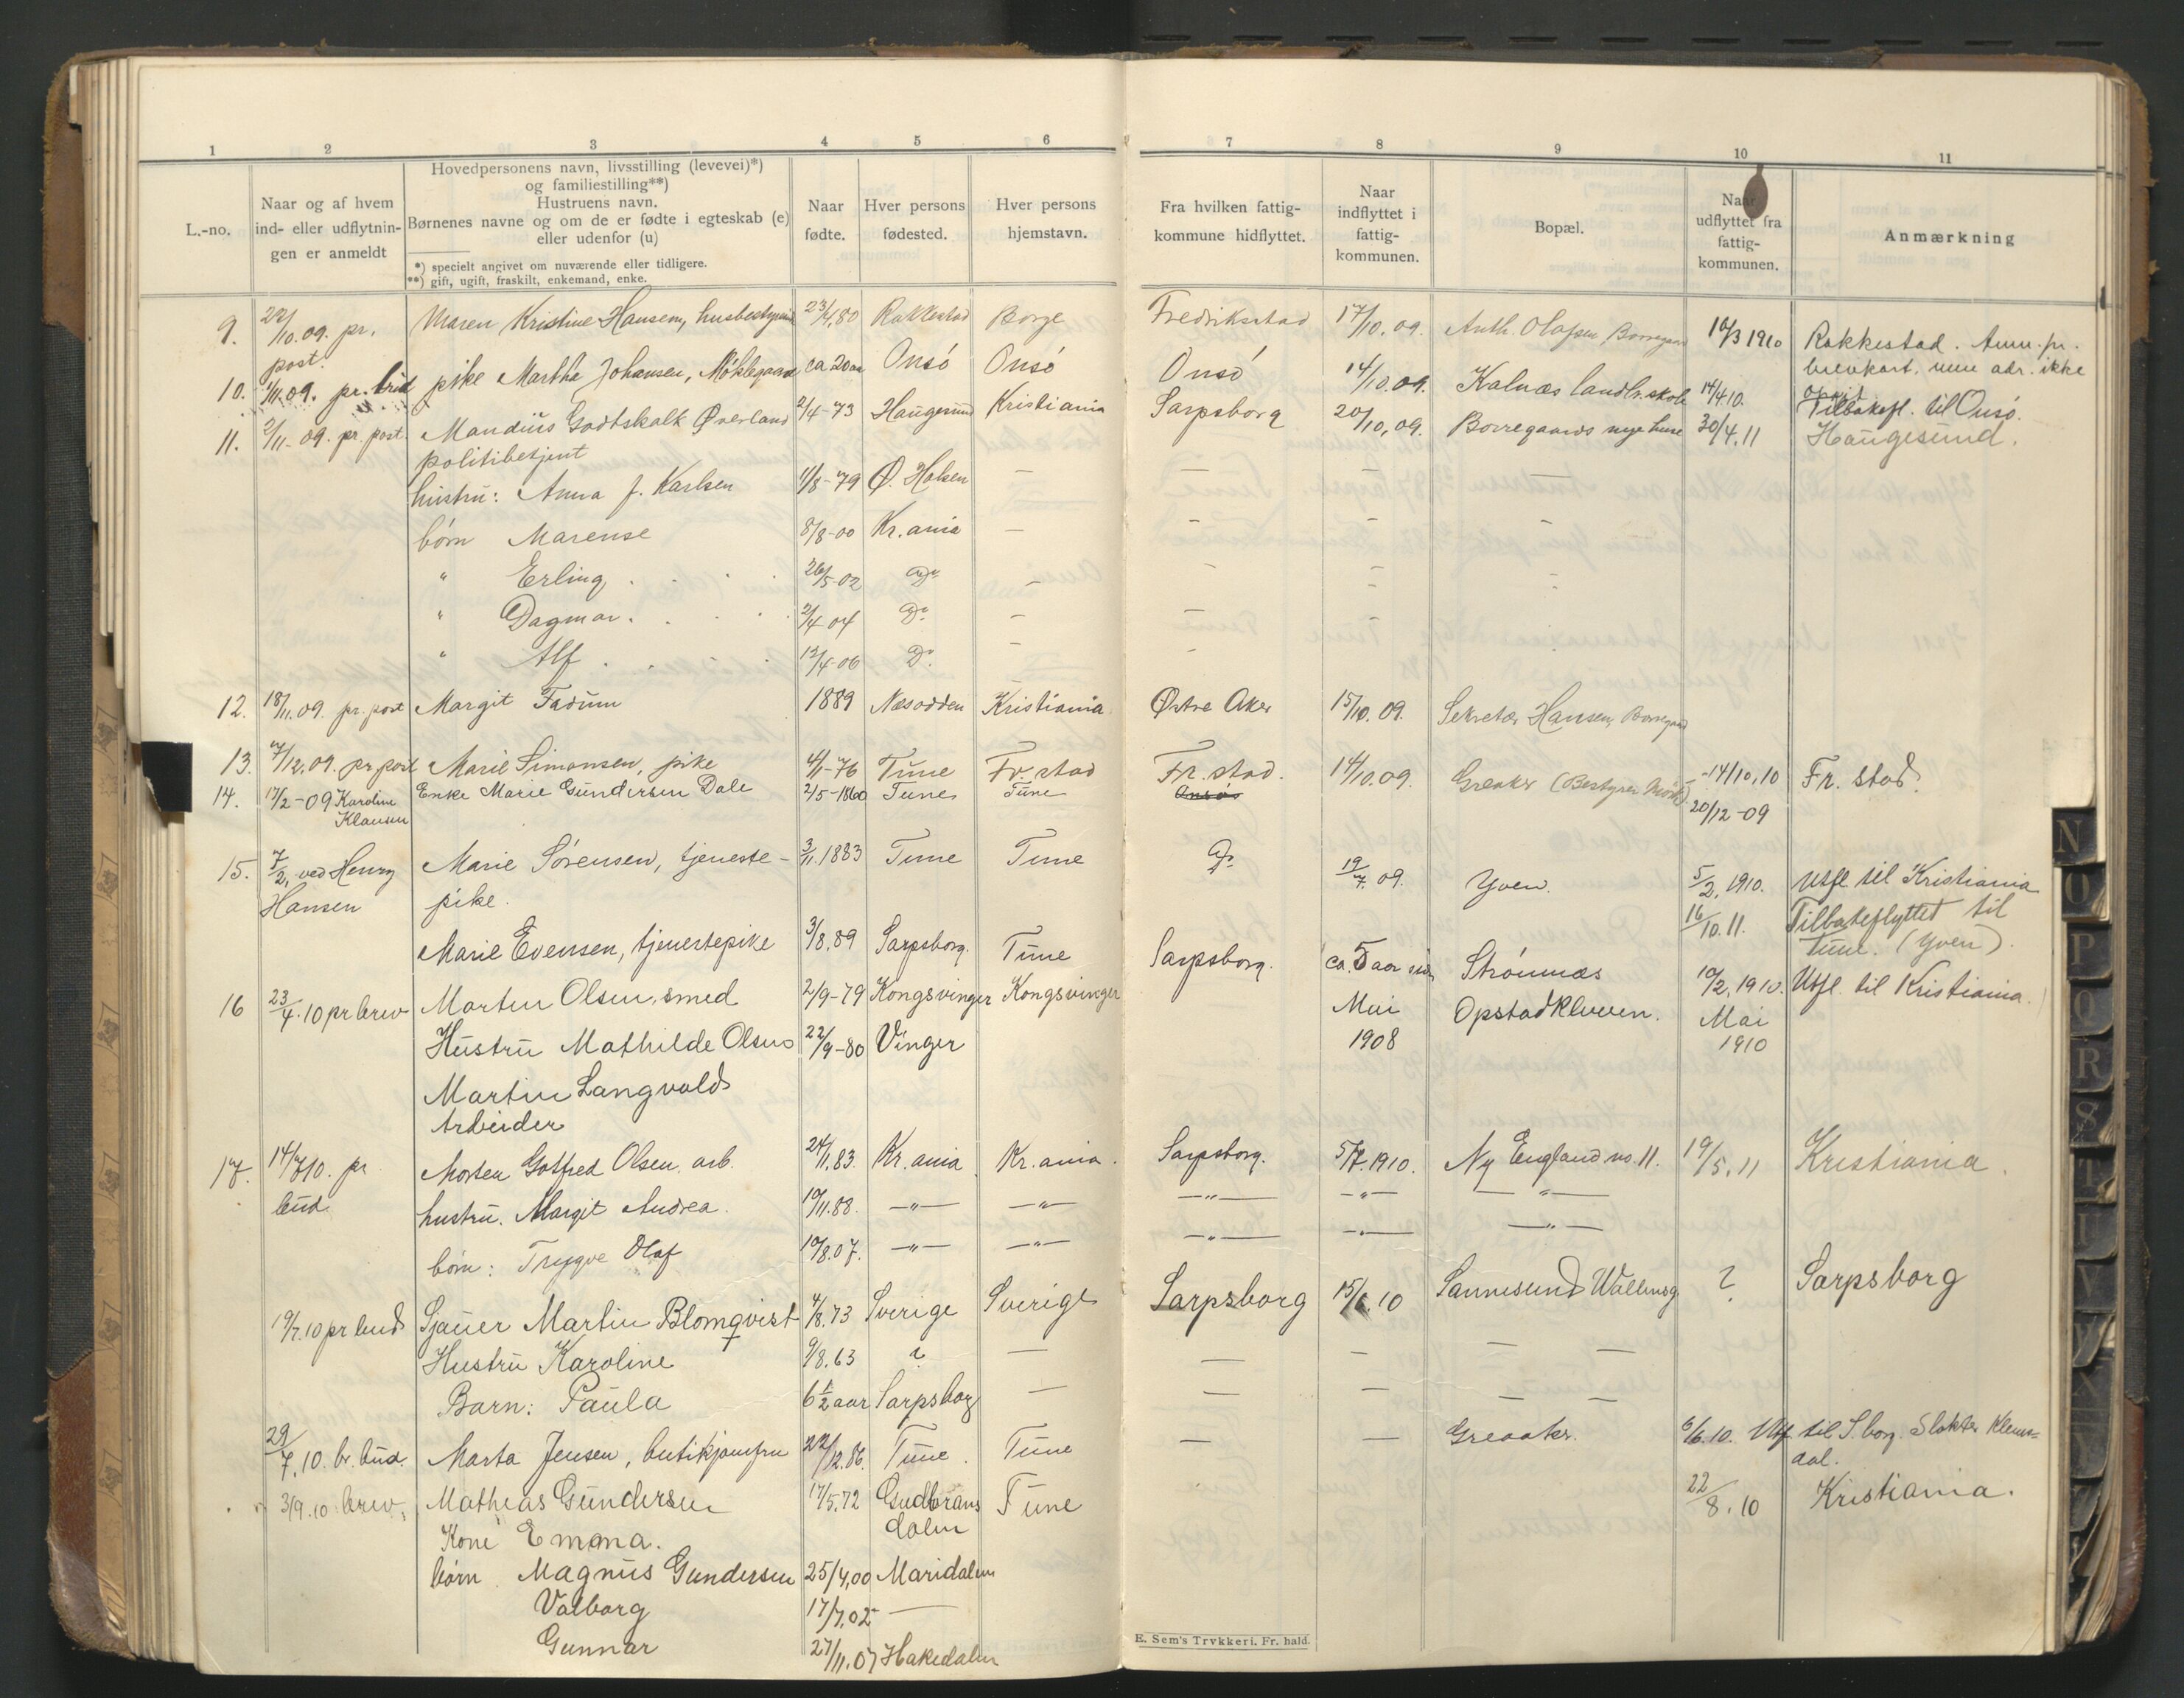 1 2 3 4 5 6 7 8 9 10 11
L.-no.
Naar og af hvem
ind- eller udflytnin-
gen er anmeldt
Hovedpersonens navn, livsstilling (levevei)*)
og familiestilling**)
Hustruens navn.
Børnenes navne og om de er fødte i egteskab (e)
eller udenfor (u)
*) specielt angivet om nuværende eller tidligere.
**) gift, ugift, fraskilt, enkemand, enke.
Naar
fødte.
Hver persons
fødested.
Hver persons
hjemstavn.
Fra hvilken fattig-
kommune hidflyttet.
Naar
indflyttet i
fattig-
kommunen.
Bopæl.
Naar
udflyttet fra
fattig-
kommunen.
Anmærkning
9. 22/10.09. pr. Maren Kristine Hansen, husbestyrerinde 23/4.80 Rakkestad Borge Fredrikstad 17/10.09. Anth. Olafsen Borregaard 10/3 1910 Rakkestad. Anm. pr.
post. brevkort. nye adr. ikke
opgit
10. 1/11.09. pr. bud pike Martha Johansen, Møklegaard ca 20 aar Onsö Onsö Onsö 14/10.09. Kalnæs landbr.skole 14/4 10. Tilbakefl. til Onsö.
11. 2/11-09. pr. post. Mandius Godtskalk Øverland 2/4-73 Haugesund Kristiania Sarpsborg 20/10.09. Borregaards nye huse 30/4.11 Haugesund.
politibetjent
hustru: Anna J. Karlsen 11/8-79 Ø. Holsen — — — —
børn Marense 8/8-00 Kr.ania — - - -
" Erling 26/5-02 Do - - - -
" Dagmar 2/4-04 Do - -
" Alf 12/4-06 Do. - -
12. 18/11.09. pr. post Margit Fadum 1889 Næsodden Kristiania Østre Aker 15/10.09. Sekretær Hansen, Borregaard
13. 7/12.09. pr post Marie Simonsen, pike 4/1-76 Tune Fr.stad Fr.stad. 14/10.09. Greaker (Bestyrer Mörk) -14/10.10 Fr.stad.
14. 17/2-09 Karoline Enke Marie Gundersen Dale 2/5-1860 Tune Tune Onsö 20/12-09
Klausen
15. 7/2, ved Henry Marie Sörensen, tjeneste- 3/11.1883 Tune Tune Do 19/7.09. Yven. 5/2.1910. Utfl. til Kristiania
Hansen pike. 16/10.11. Tilbakeflyttet til
Tune. (Yven).
Marie Evensen, tjenestepike 3/8.89 Sarpsborg. Tune Sarpsborg. ca. 5 aar siden Strömnæs 10/2.1910. Utfl. til Kristiania.
16 23/4.10 pr brev Martin Olsen, smed 2/9-79 Kongsvinger Kongsvinger Mai Opstadkleven. Mai
Hustru Mathilde Olsen 22/9-80 Vinger 1908 1910
Martin Langvold
Arbeider
17. 14/7 10. pr Morten Gotfred Olsen. arb. 24/11.83. Kr.ania Kr.ania. Sarpsborg. 5/7.1910. Ny England no. 11. 19/5.11 Kristiania.
bud. hustru. Margit Andrea. 10/11.88. —"— —"— —"— —"— —"—
børn: Trygve Olaf 10/8.07. —"— —"— —"— —"— —"—
19/7.10 pr bud Sjauer Martin Blomqvist 4/8.73 Sverige Sverige Sarpsborg 15/6.10 Sannesund Wallensg ? Sarpsborg
Hustru Karoline 9/8.63 ? — — — — —
Barn: Paula 6 1/2 aar Sarpsborg — — — — —
29/7.10. br. bud. Marta Jensen, butikjomfru 22/12.86. Tune. Tune — — Greaaker. 6/6.10. Utf. til S.borg. Slakter Klems-
dal.
3/9.10 brev. Mathias Gundersen 17/5.72 Gudbrans Tune 22/8.10 Kristiania.
dalen
Kone Emma.
børn Magnus Gundersen 25/4.00 Maridalen
Valborg 17/7.02 —
Gunnar 27/11.07 Hakedalen
E. Sem's Trykkeri. Fr. hald.
N
O
P
Q
R
S
T
U
V
W
X